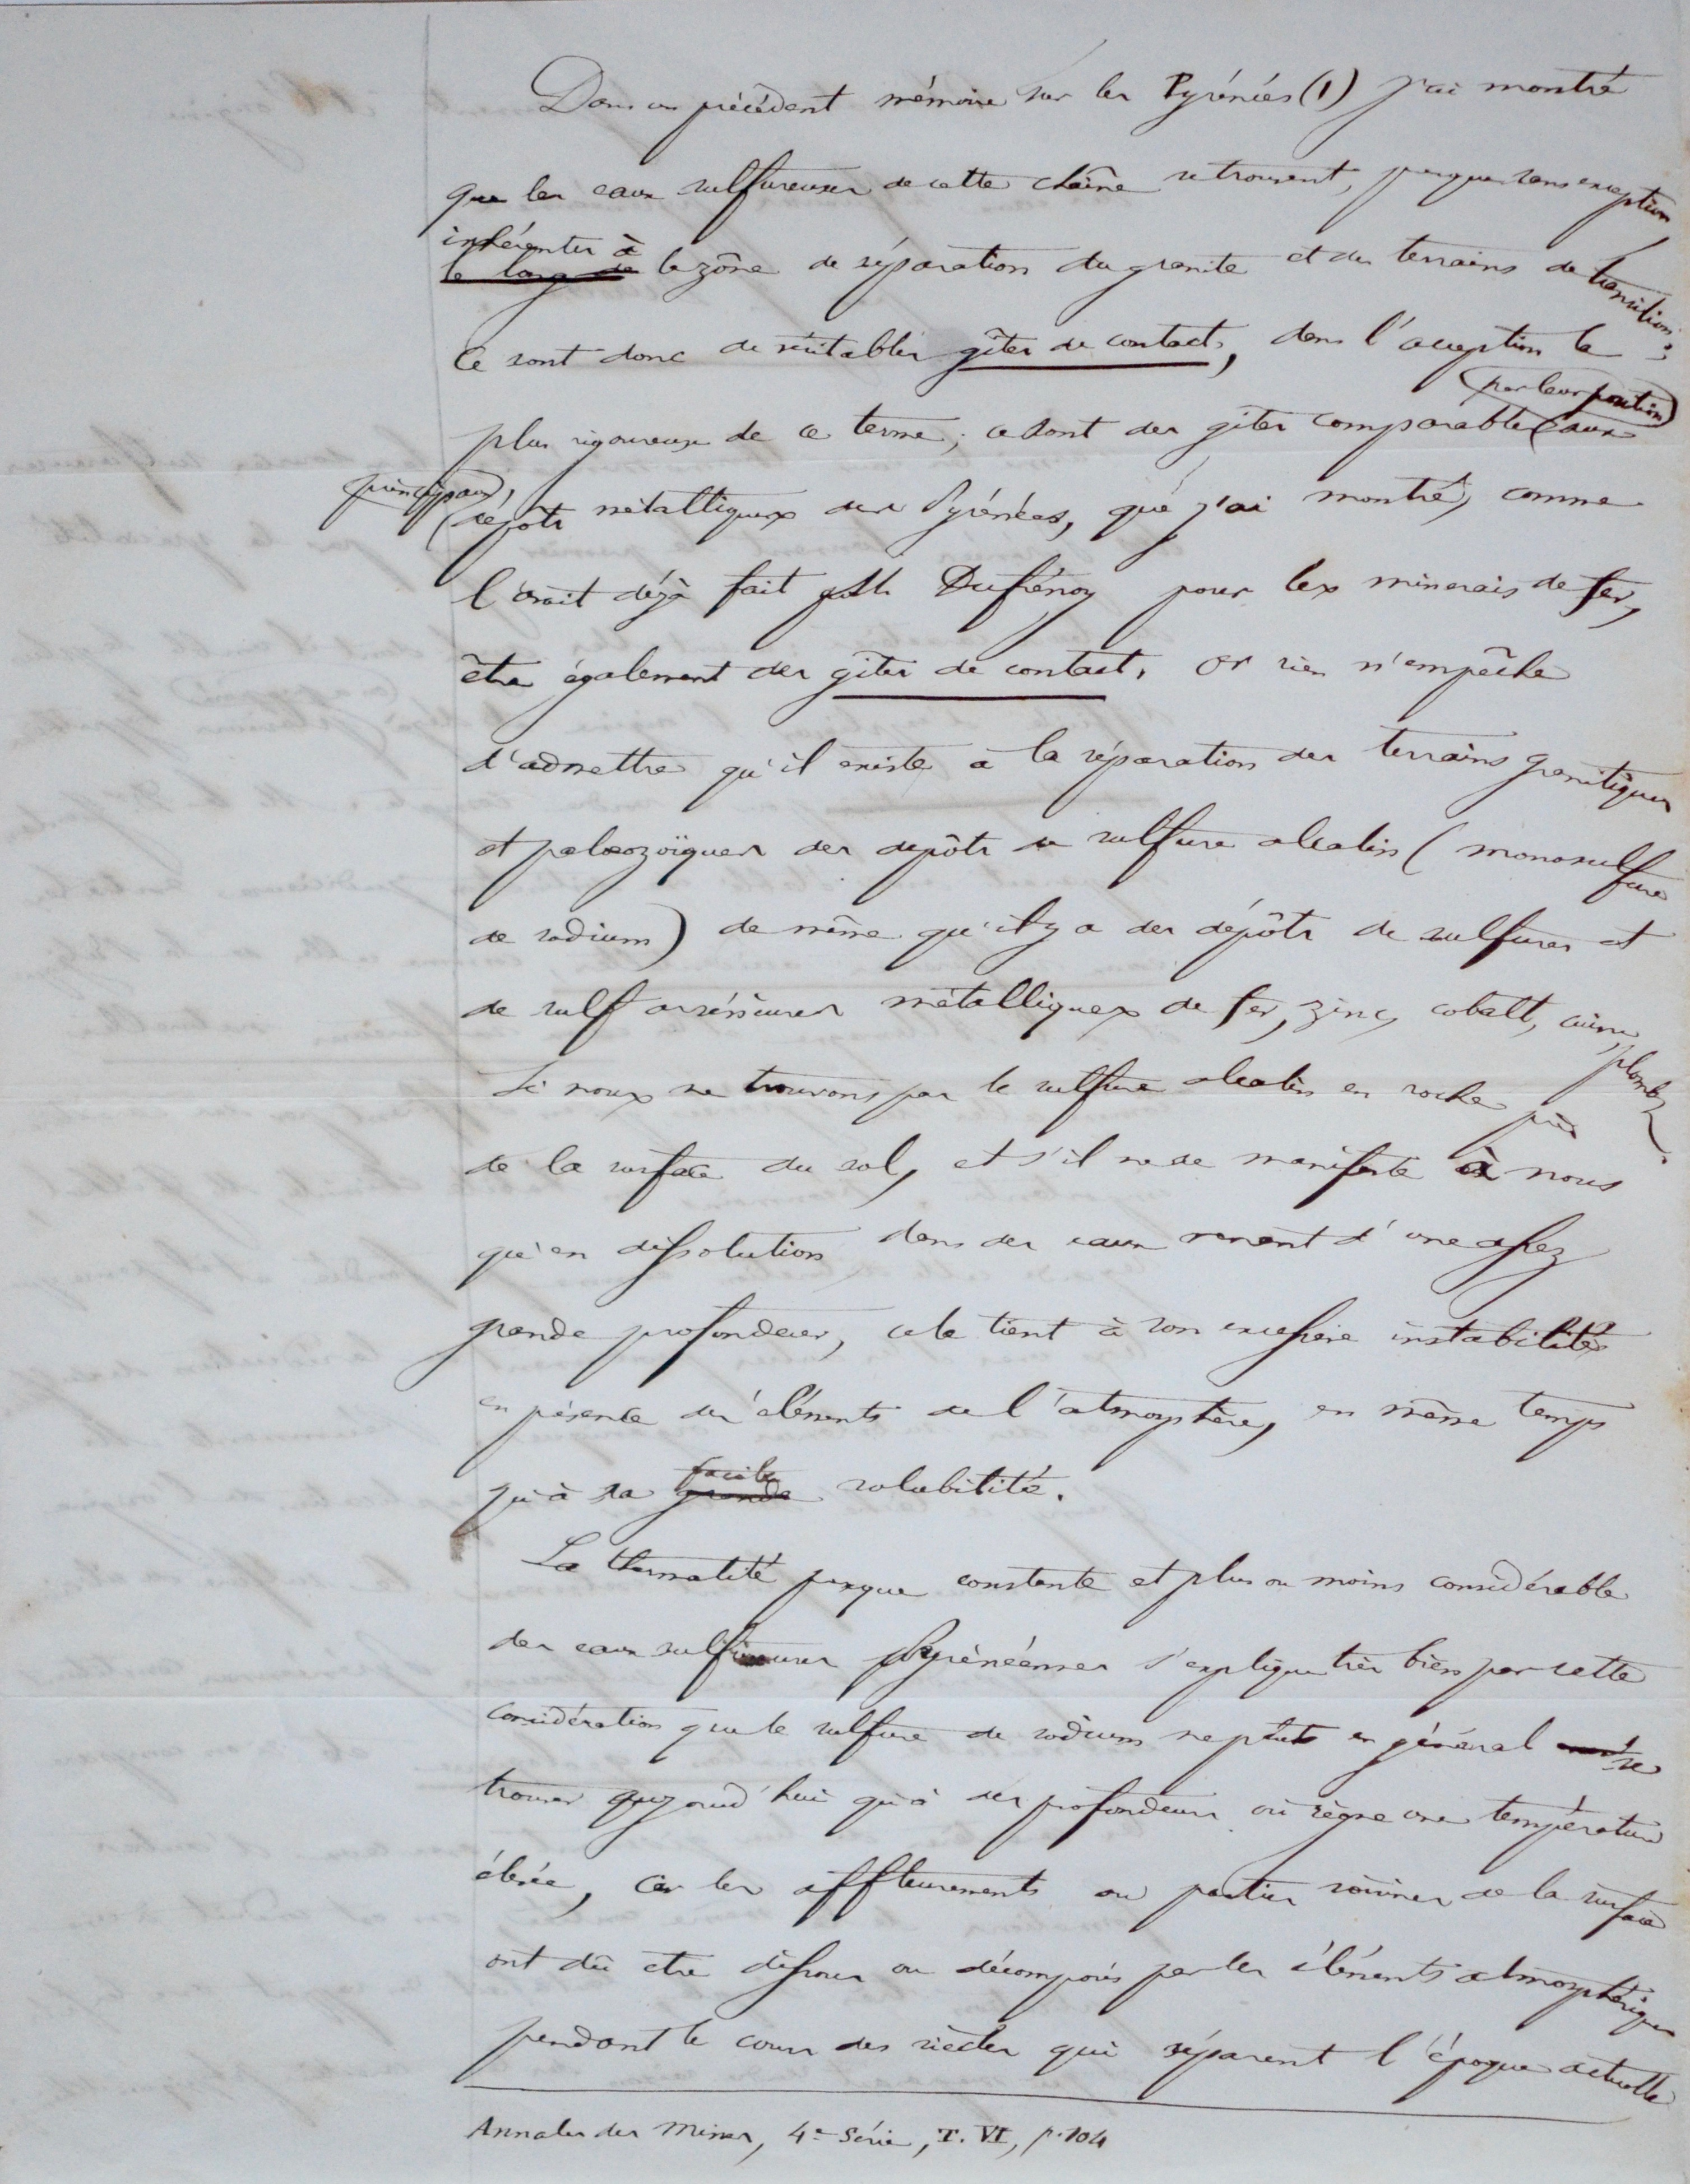 Dans un précédent mémoire sur les Pyrénées (1) j'ai montré
que les eaux sulfureuses de cette chaîne se trouvent, presque sans exception
inhérentes à
le long de la zône de séparation du granite et des terrains de transition :
Ce sont donc de véritables gîtes de contact, dans l'acception la
(par leur position)
plus rigoureuse de ce terme ; ce sont des gîtes comparables aux
principaux,
dépôts métalliques des Pyrénées, que j'ai montré, comme
l'avait déjà fait M. Dufrénoy pour les minerais de fer,
être également des gîtes de contact. Or rien n'empêche
d'admettre qu'il existe à la séparation des terrains granitiques
et palæozoïques des dépôts de sulfure alcalin (monosulfure
de sodium) de même qu'il y a des dépôts de sulfures et
de sulfarséniures métalliques de fer, zinc, cobalt, cuivre, plomb &.
Si nous ne trouvons pas le sulfure alcalin en roche près
de la surface du sol, et s'il ne se manifeste à nous
qu'en dissolution dans des eaux venant d'une assez
grande profondeur, cela tient à son excessive instabilité
en présence des éléments de l'atmosphère, en même temps
facile
qu'à sa grande solubilité.
La thermalité presque constante et plus ou moins considérable
des eaux sulfureuses pyrénéennes s'explique très bien par cette
considération que le sulfure de sodium ne peut en général se
trouver aujourd'hui qu'à des profondeurs où règne une température
élevée, car les affleurements ou parties voisines de la surface
ont dû être dissous ou décomposés par les éléments atmosphériques
pendant le cours des siècles qui séparent l'époque actuelle
Annales des Mines, 4e Série, T. VI, p. 104